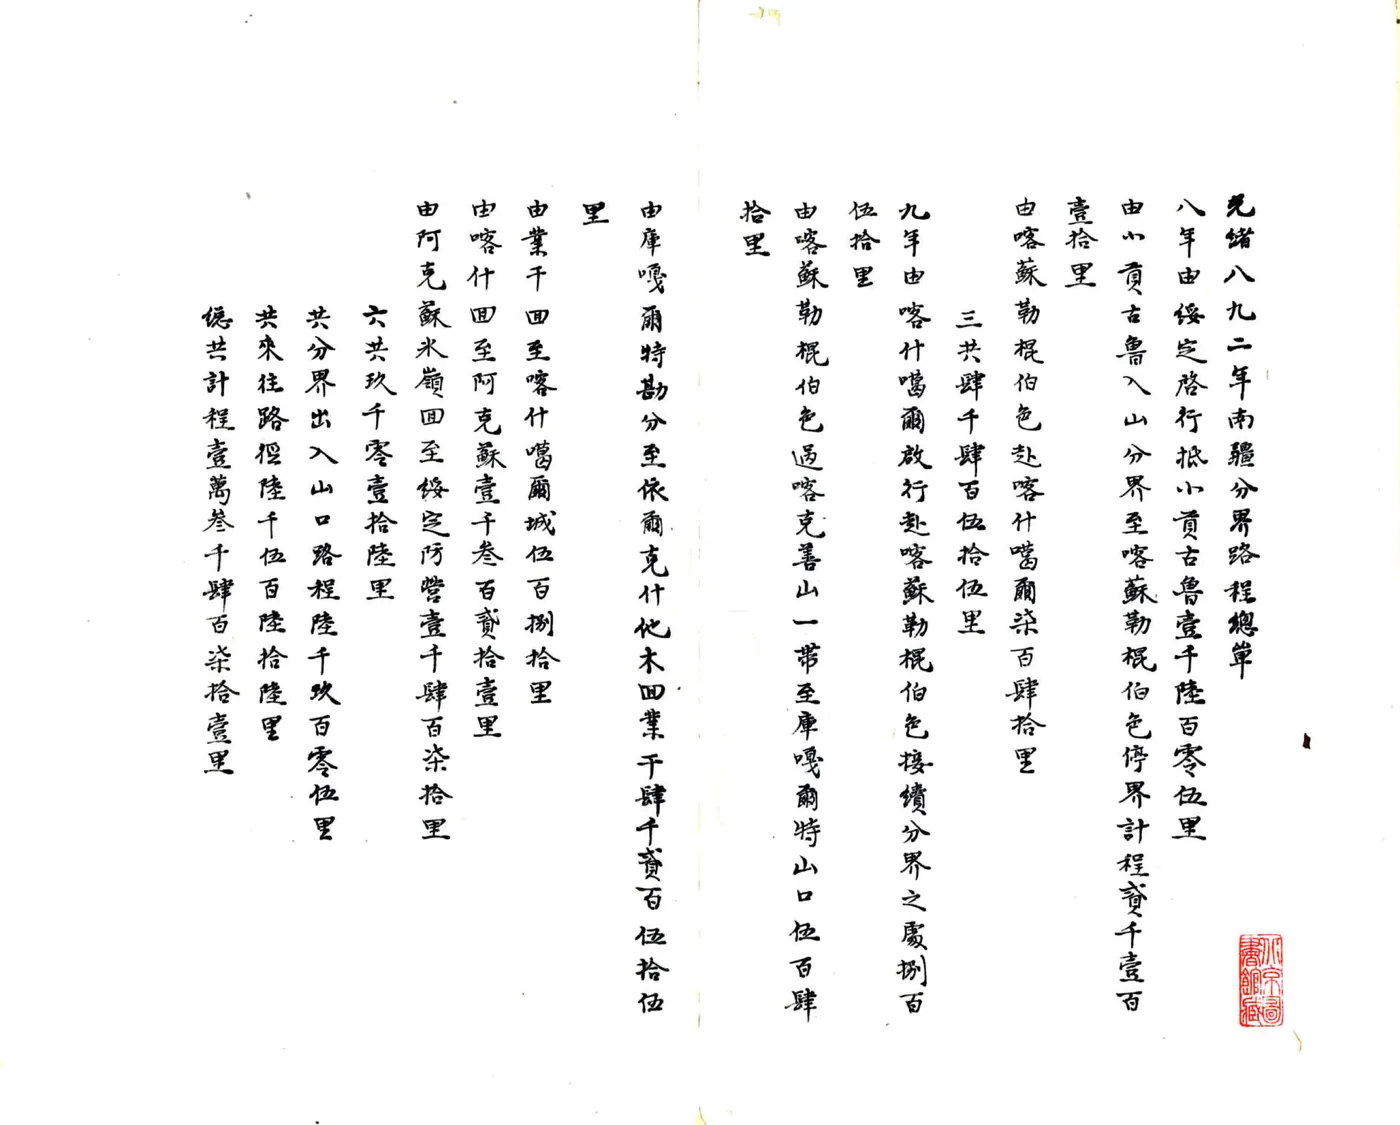 光緒八九二年南疆分界路程總單
八年由綏定啓行抵小貢古魯壹千陸百零伍里
由小貢古魯入山分界至喀蘇勒棍伯色停界計程貳千壹百
壹拾里
由喀蘇勒棍伯色赴喀什噶爾柒百肆拾里
三共肆千肆百伍拾伍里
九年由喀什噶爾啟行赴喀蘇勒棍伯色接續分界之處捌百
伍拾里
由喀蘇勒棍伯色過喀克善山一帶至庫嘎爾特山口伍百肆
拾里
由庫嘎爾特勘分至依爾克什他木回業干肆千貳百伍拾伍
里
由業干回至喀什噶爾城伍百捌拾里
由喀什回至阿克蘇壹千叁百貳拾壹里
由阿克蘇氷嶺回至綏定防營壹千肆百柒拾里
六共玖千零壹拾陸里
共分界出入山口路程陸千玖百零伍里
共來往路徑陸千伍百陸拾陸里
總共計程壹萬叄千肆百柒拾壹里
北京圖書館藏